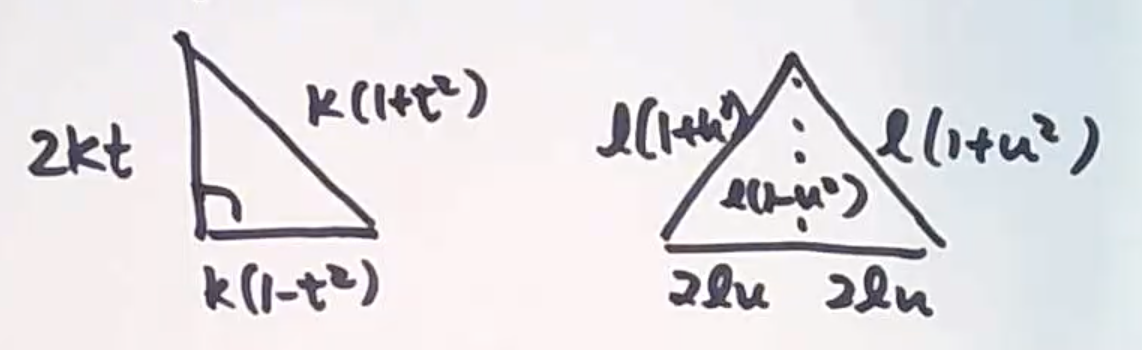 2kt
k(1+t²)
k(1-t²)
l(1+u²)
l(1+u²)
l(1-u²)
2lu 2lu